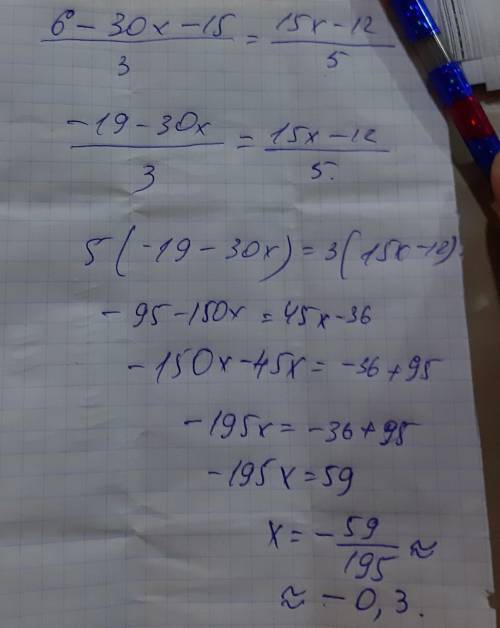 6 - 30x - 15 / 3 = 15x - 12 / 5
-19 - 30x / 3 = 15x - 12 / 5.
5(-19 - 30x) = 3(15x - 12)
-95 - 150x = 45x - 36
-150x - 45x = -36 + 95
-195x = -36 + 95
-195x = 59
x = - 59 / 195 ≈
≈ -0,3.